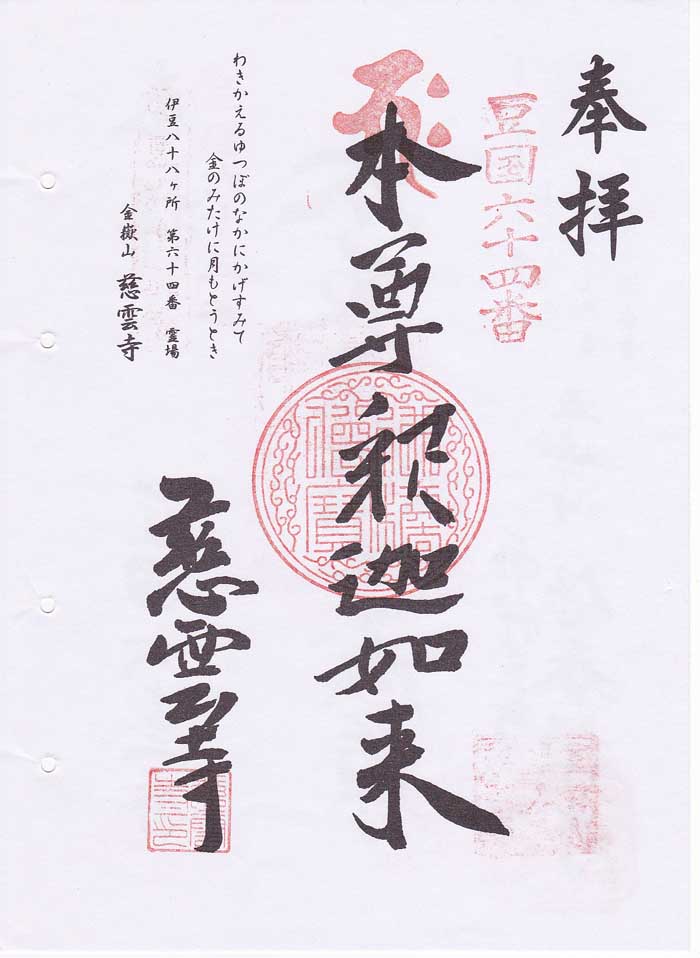 奉拝
豆国六十四番
本尊釈迦如来
わきかえるゆつぼのなかにかげすみて
金のみたけに月もとうとき
伊豆八十八ヶ所 第六十四番 霊場
金嶽山 慈雲寺
慈雲寺